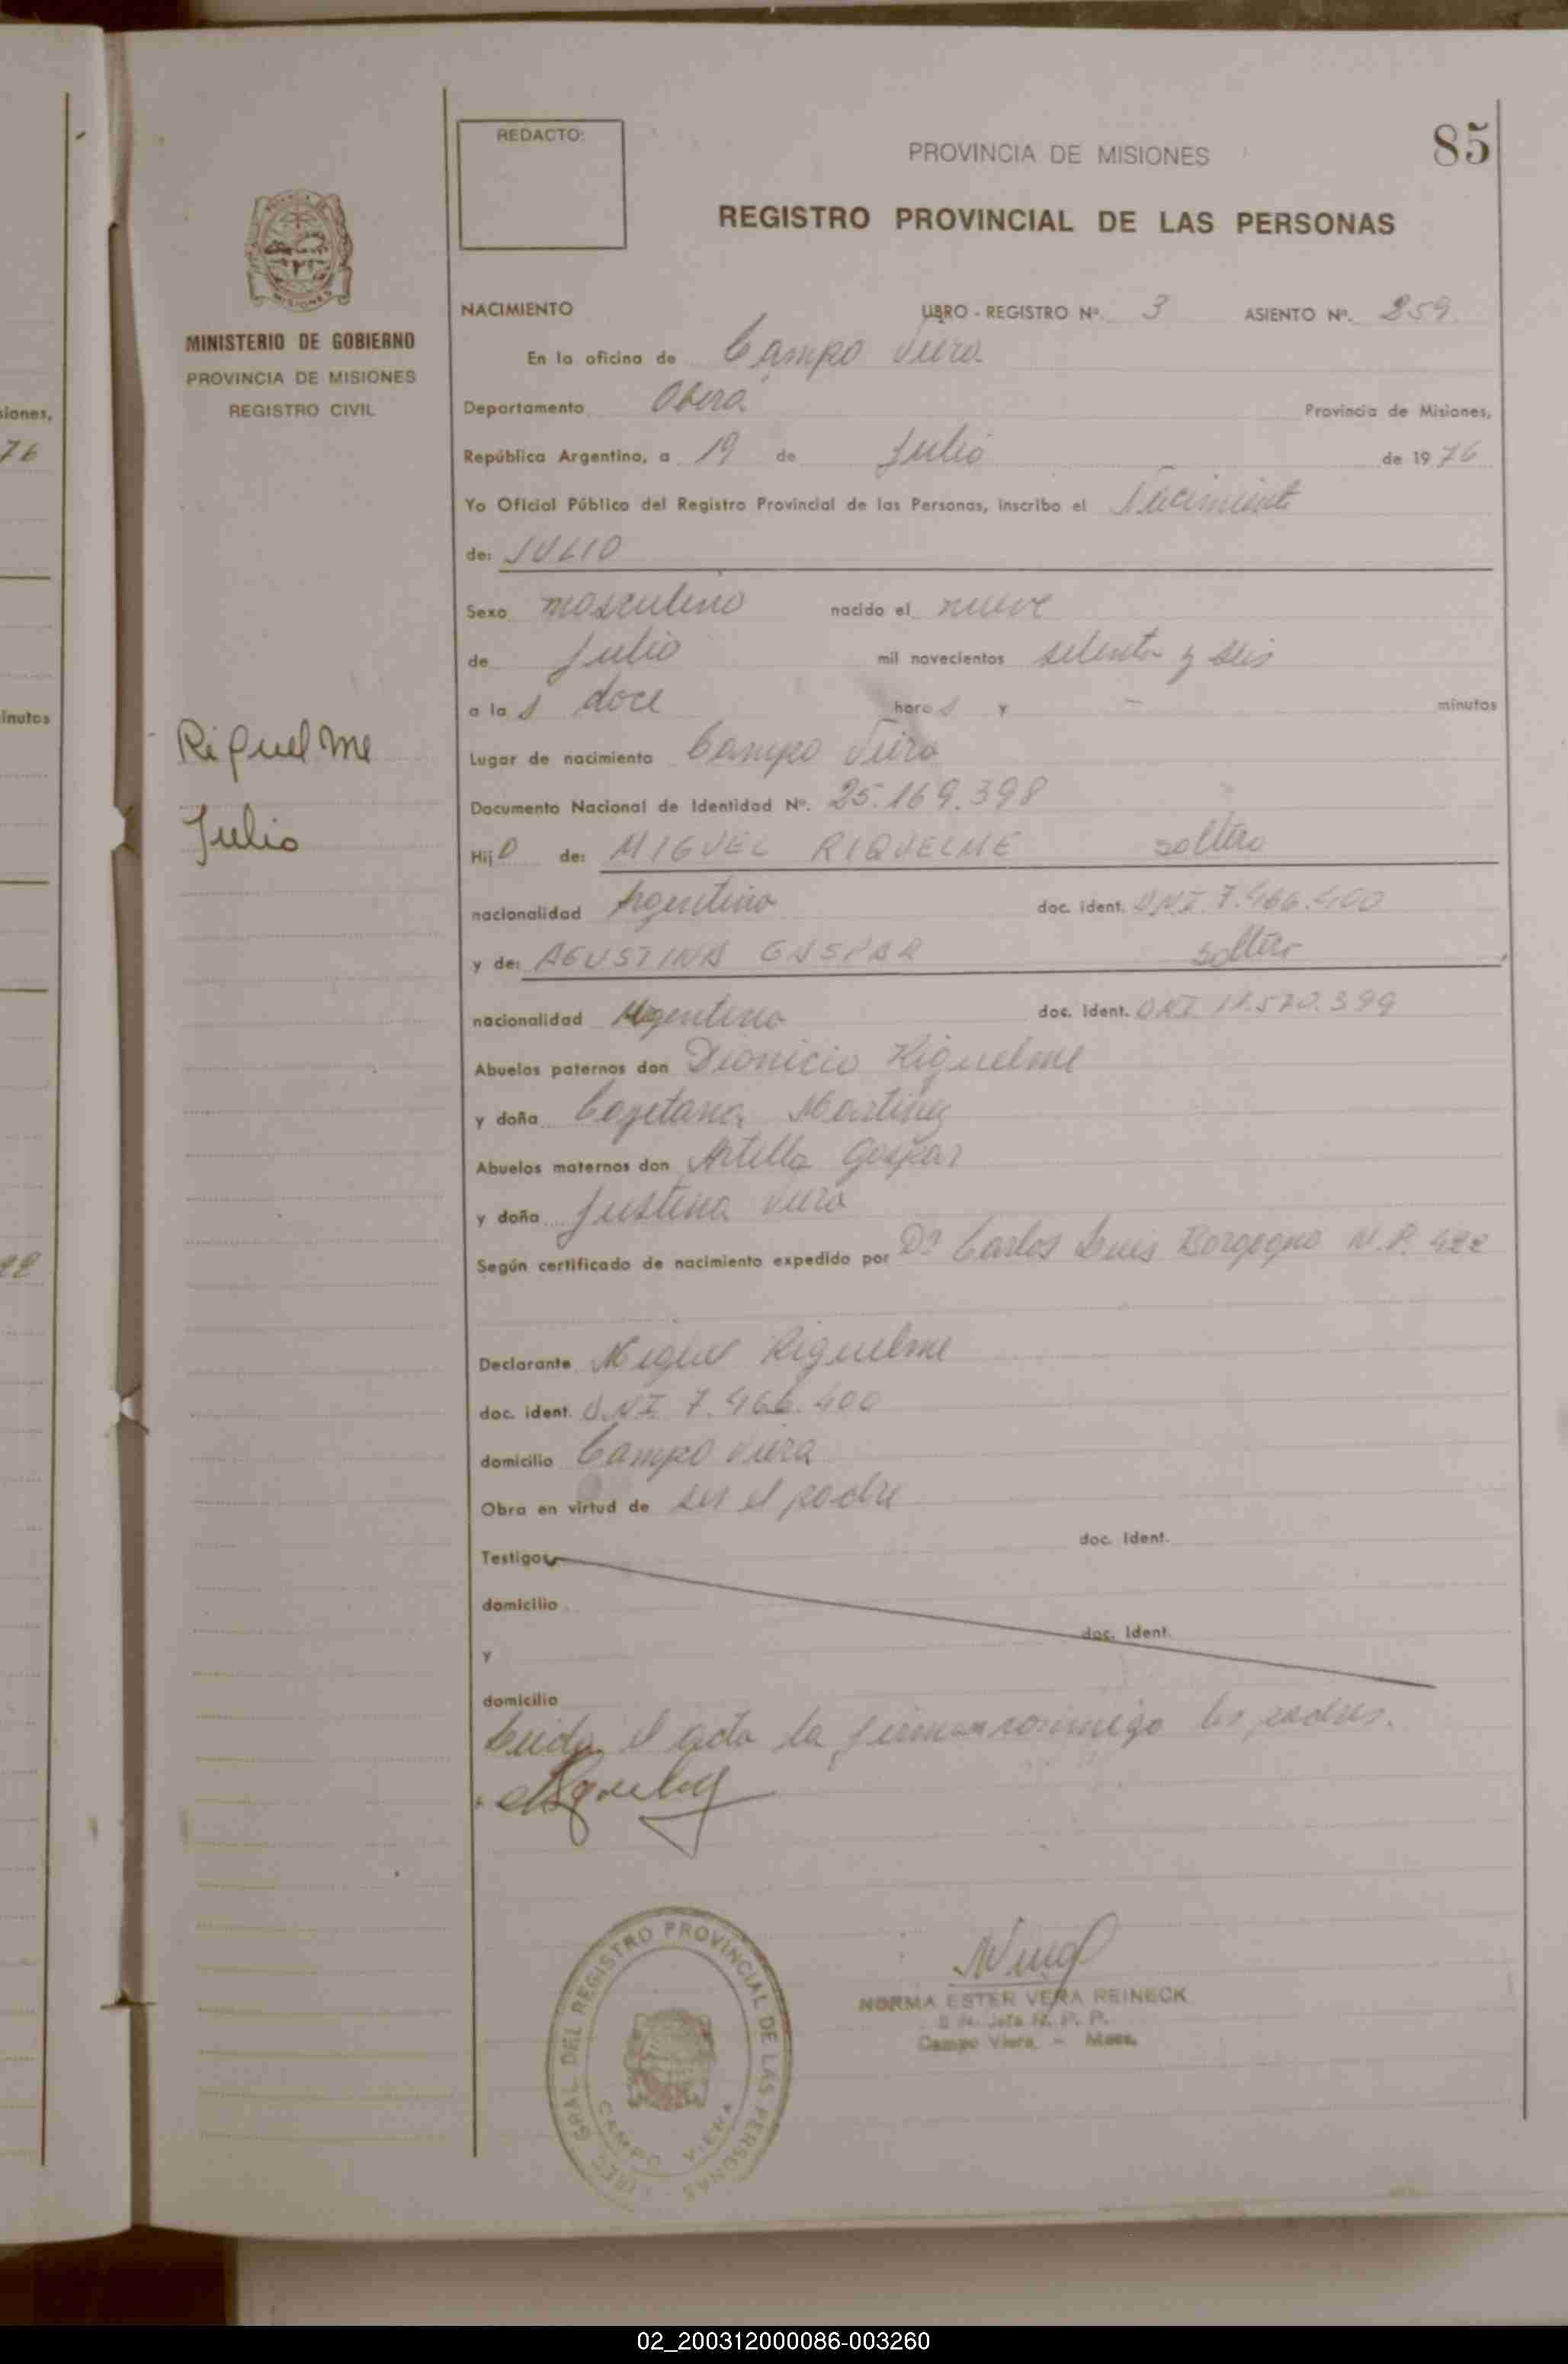 85
REDACTO:
PROVINCIA DE MISIONES
REGISTRO PROVINCIAL DE LAS PERSONAS
MISIONES
MINISTERIO DE GOBIERNO
PROVINCIA DE MISIONES
REGISTRO CIVIL
siones,
76
inutos
22
Riquelme
Julio
NACIMIENTO LIBRO - REGISTRO Nº. 3 ASIENTO Nº. 259
En la oficina de Campo Viera
Departamento Oberá Provincia de Misiones,
República Argentina, a 19 de Julio de 1976
Yo Oficial Público del Registro Provincial de las Personas, inscribo el Nacimiento
de: JULIO
Sexo masculino nacido el nueve
de Julio mil novecientos setenta y seis
a las doce horas y - minutos
Lugar de nacimiento Campo Viera
Documento Nacional de Identidad Nº. 25.169.398
Hijo de: MIGUEL RIQUELME soltero
nacionalidad Argentino doc. ident. DNI. 7.466.400
y de: AGUSTINA GASPAR soltera
nacionalidad Argentina doc. ident. DNI
Abuelos paternos don Dionicio Riquelme
y doña Cayetana Martinez
Abuelos maternos don Gaspar
y doña Justina Viera
Según certificado de nacimiento expedido por Dr Carlos Luis Borgogno M.P. 422
Declarante Miguel Riquelme
doc. ident. D.N.I 7.466.400
domicilio Campo Viera
Obra en virtud de ser el padre
Testigos doc. Ident.
domicilio
y doc. Ident.
domicilio
Leida el acta la firman conmigo los padres.
NORMA ESTER VERA REINECK
Jefa R. P. P.
Campo Viera - Mnes.
GRAL DEL REGISTRO PROVINCIAL DE LAS PERSONAS
CAMPO VIERA
02_200312000086-003260